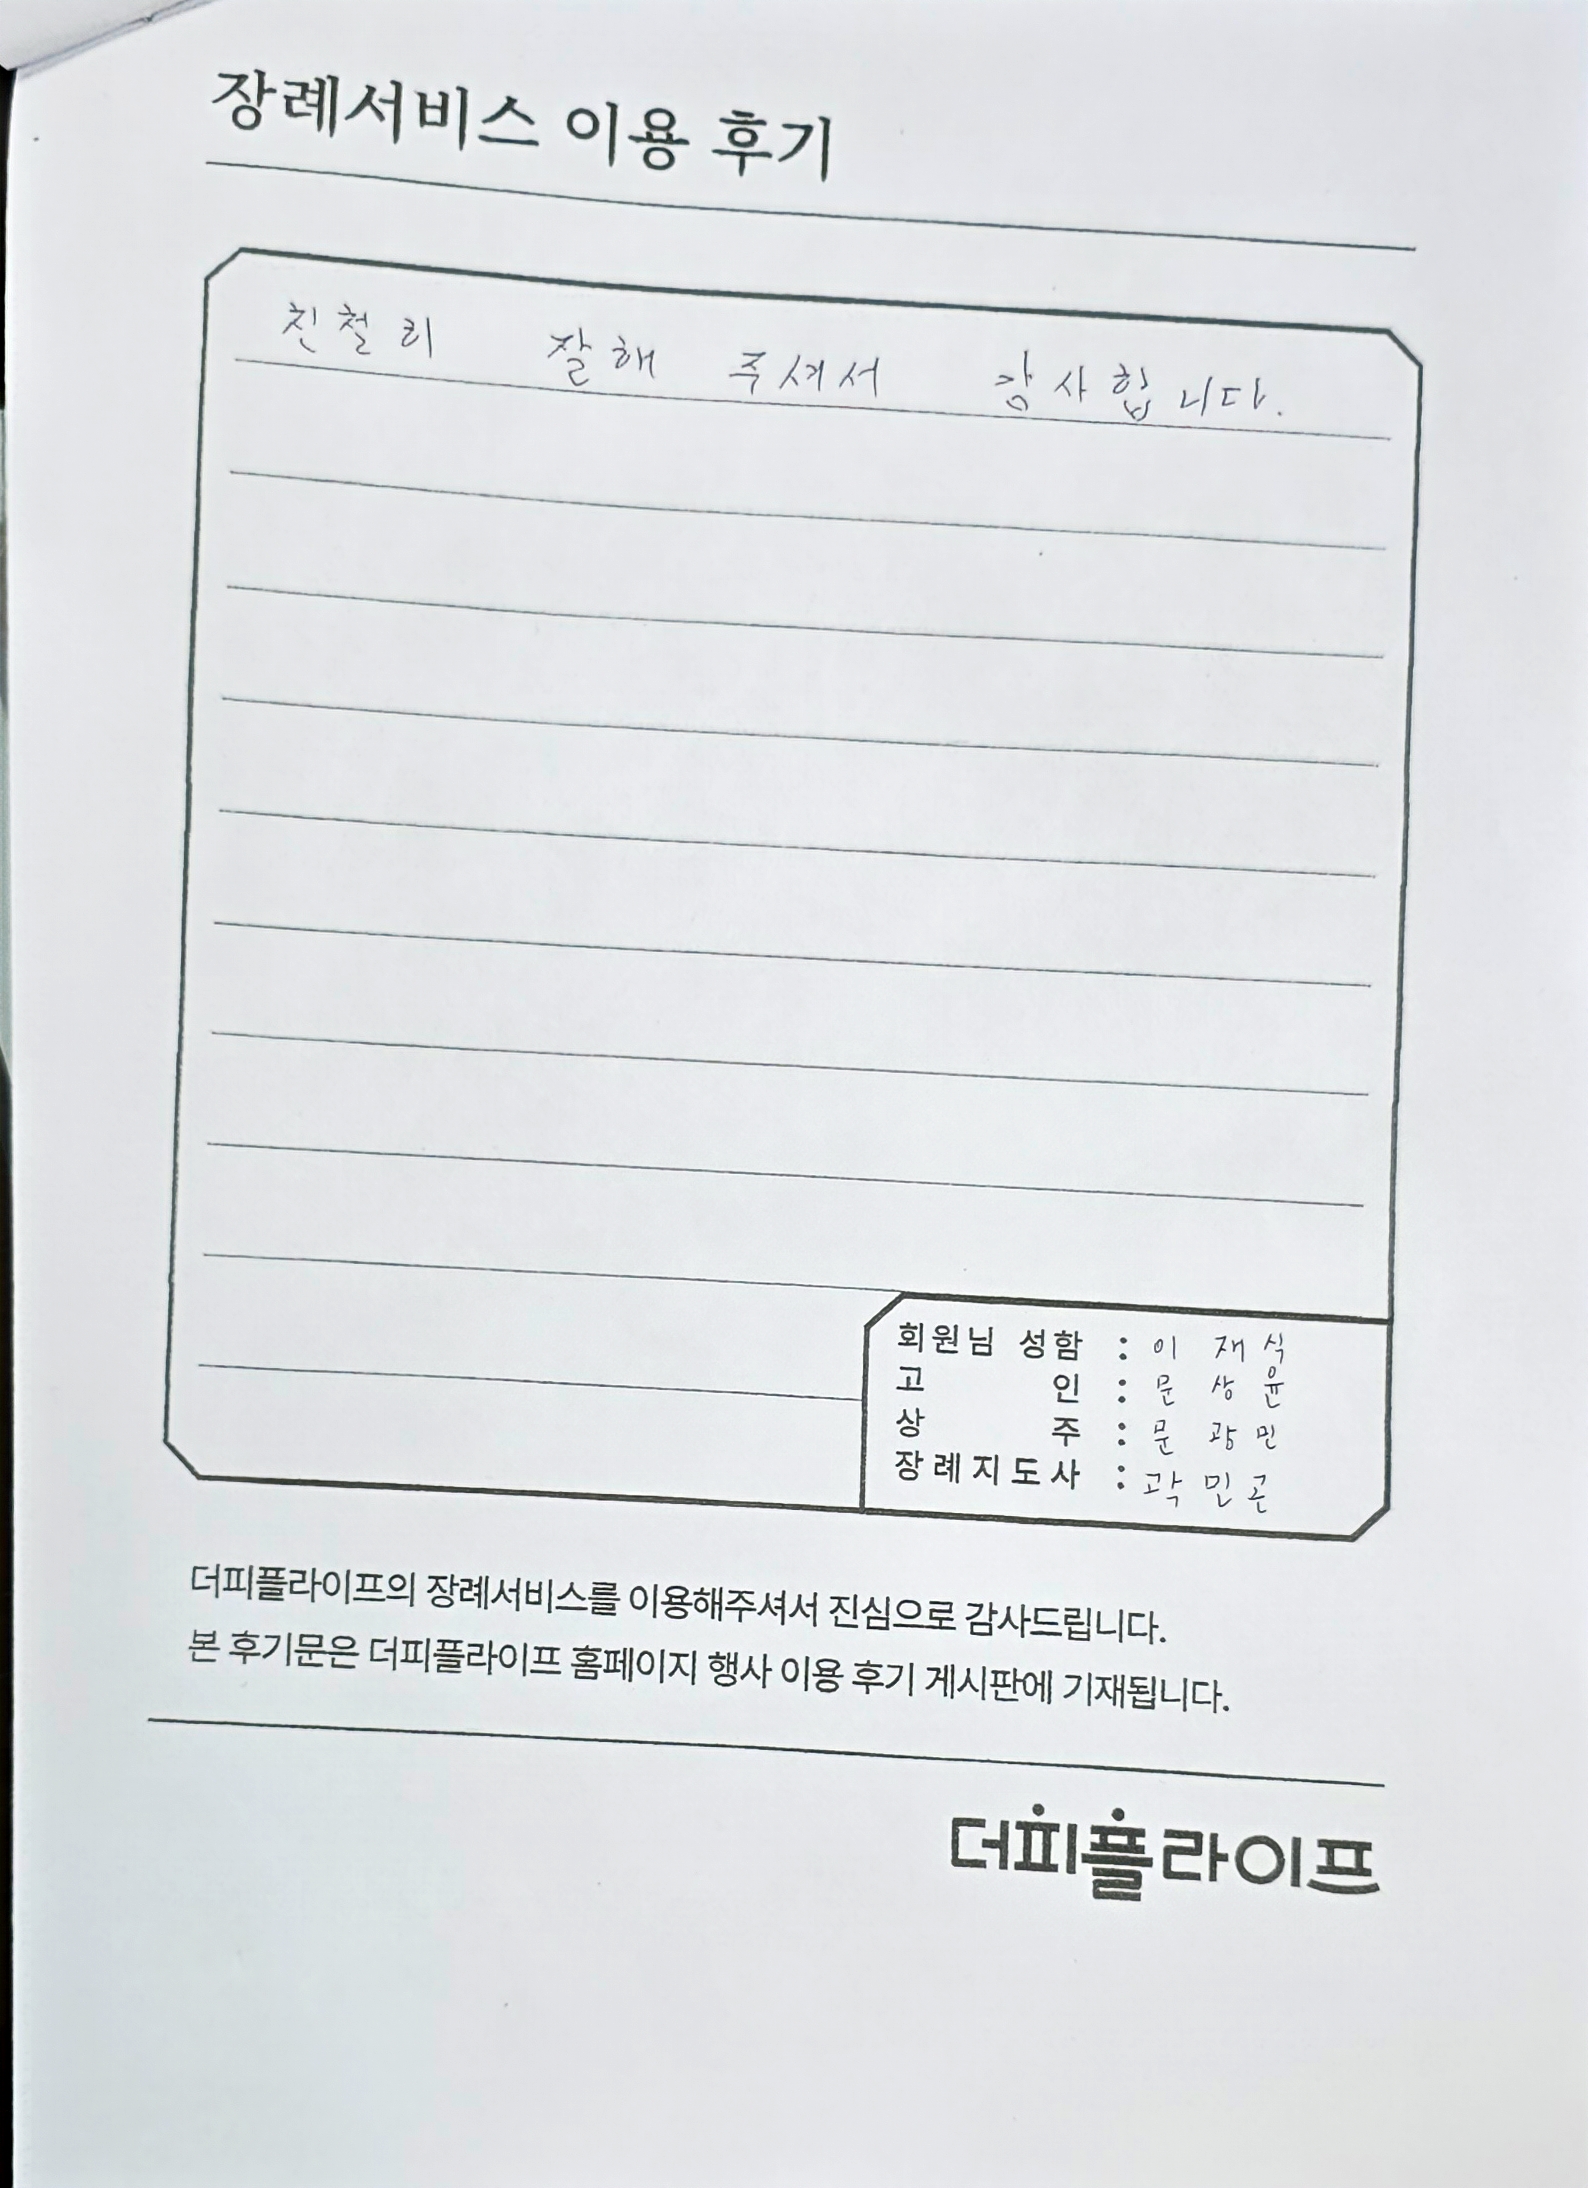 장례서비스 이용 후기
친철히 잘해 주셔서 감사합니다.
회원님 성함 : 이재식
고 인 : 문상윤
상 주 : 문광민
장례지도사 : 곽민곤
더피플라이프의 장례서비스를 이용해주셔서 진심으로 감사드립니다.
본 후기문은 더피플라이프 홈페이지 행사 이용 후기 게시판에 기재됩니다.
더피플라이프